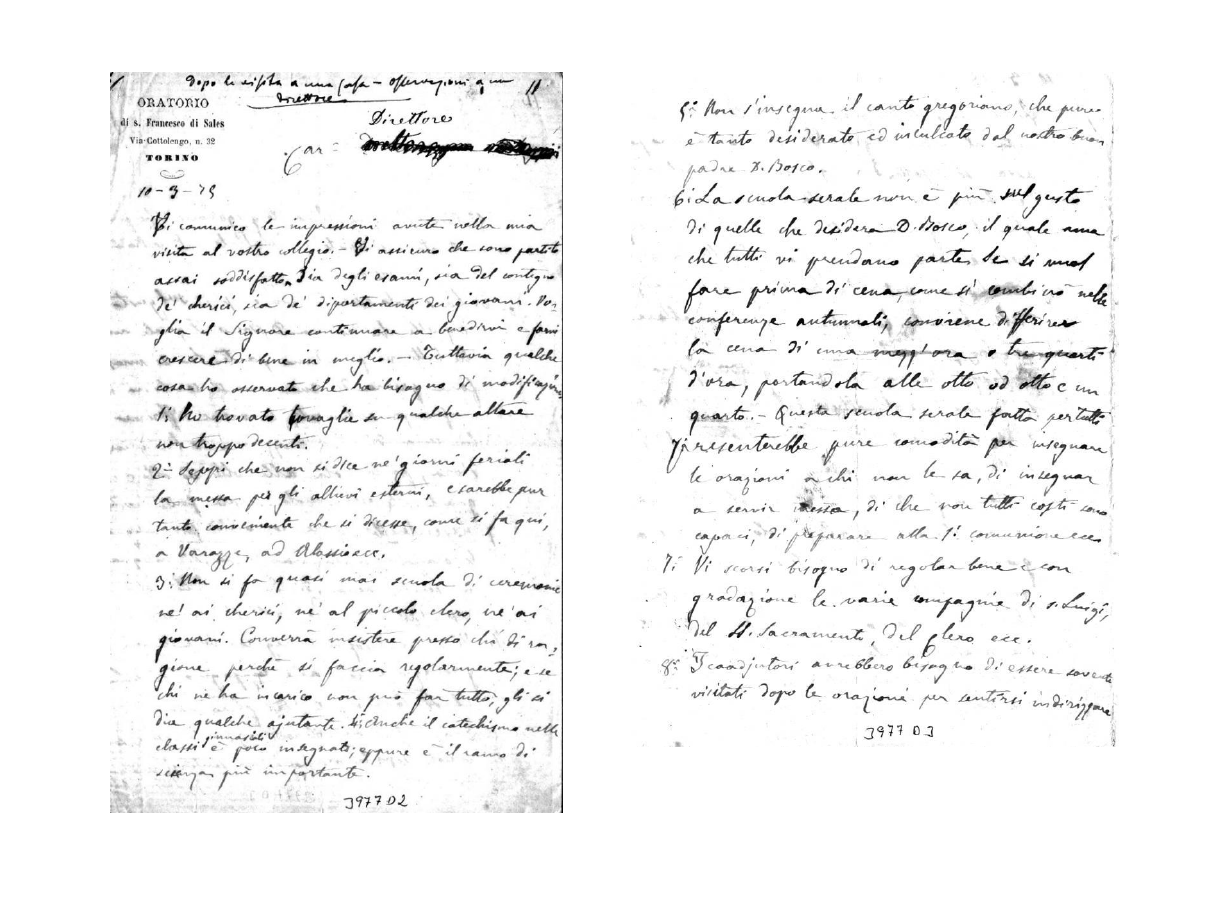 Dopo la visita a una Casa - osservazioni a un
Direttore
11
ORATORIO
di s. Francesco di Sales
Via Cottolengo, n. 32
TORINO
Direttore
Car
10-3-75
Vi comunico le impressioni avute nella mia
visita al vostro collegio. - Vi assicuro che sono partito
assai soddisfatto, sia degli esami, sia del contegno
de' cherici, sia de' diportamenti dei giovani. Vo-
glia il Signore continuare a benedirvi e farvi
crescere di bene in meglio. - Tuttavia qualche
cosa ho osservato che ha bisogno di modificazione
1: Ho trovato tovaglie su qualche altare
non troppo decenti.
2: Seppi che non si dice ne' giorni feriali
la messa per gli allievi esterni, e sarebbe pur
tanto conveniente che si dicesse, come si fa qui,
a Varazze, ad Alassio ecc.
3: Non si fa quasi mai scuola di ceremonie
nè ai cherici, nè al piccolo clero, nè ai
giovani. Converrà insistere presso chi di ra-
gione perchè si faccia regolarmente; e se
chi ne ha incarico non può far tutto, gli si
dia qualche ajutante. 4: Anche il catechismo nelle
classi ginnasiali è poco insegnato; eppure è il ramo di
scienza più importante.
3977 D2
5: Non s'insegna il canto gregoriano, che pure
è tanto desiderato ed inculcato dal nostro buon
padre D. Bosco.
6: La scuola serale non è più sul gusto
di quelle che desidera D. Bosco, il quale ama
che tutti vi prendano parte. Se si vuol
fare prima di cena, come si combinò nelle
conferenze autunnali, conviene differirer
la cena di una mezz'ora o tre quarti
d'ora, portandola alle otto od otto e un
quarto. - Questa scuola serale fatta per tutti
presenterebbe pure comodità per insegnare
le orazioni a chi non le sa, di insegnar
a servir messa, di che non tutti costì sono
capaci, di preparare alla 1: comunione ecc.
7: Vi scorsi bisogno di regolar bene e con
gradazione le varie compagnie di s. Luigi,
del SS. Sacramento, del Clero ecc.
8: I coadjutori avrebbero bisogno di essere sovente
visitati dopo le orazioni per sentirsi indirizzare
3977 D3